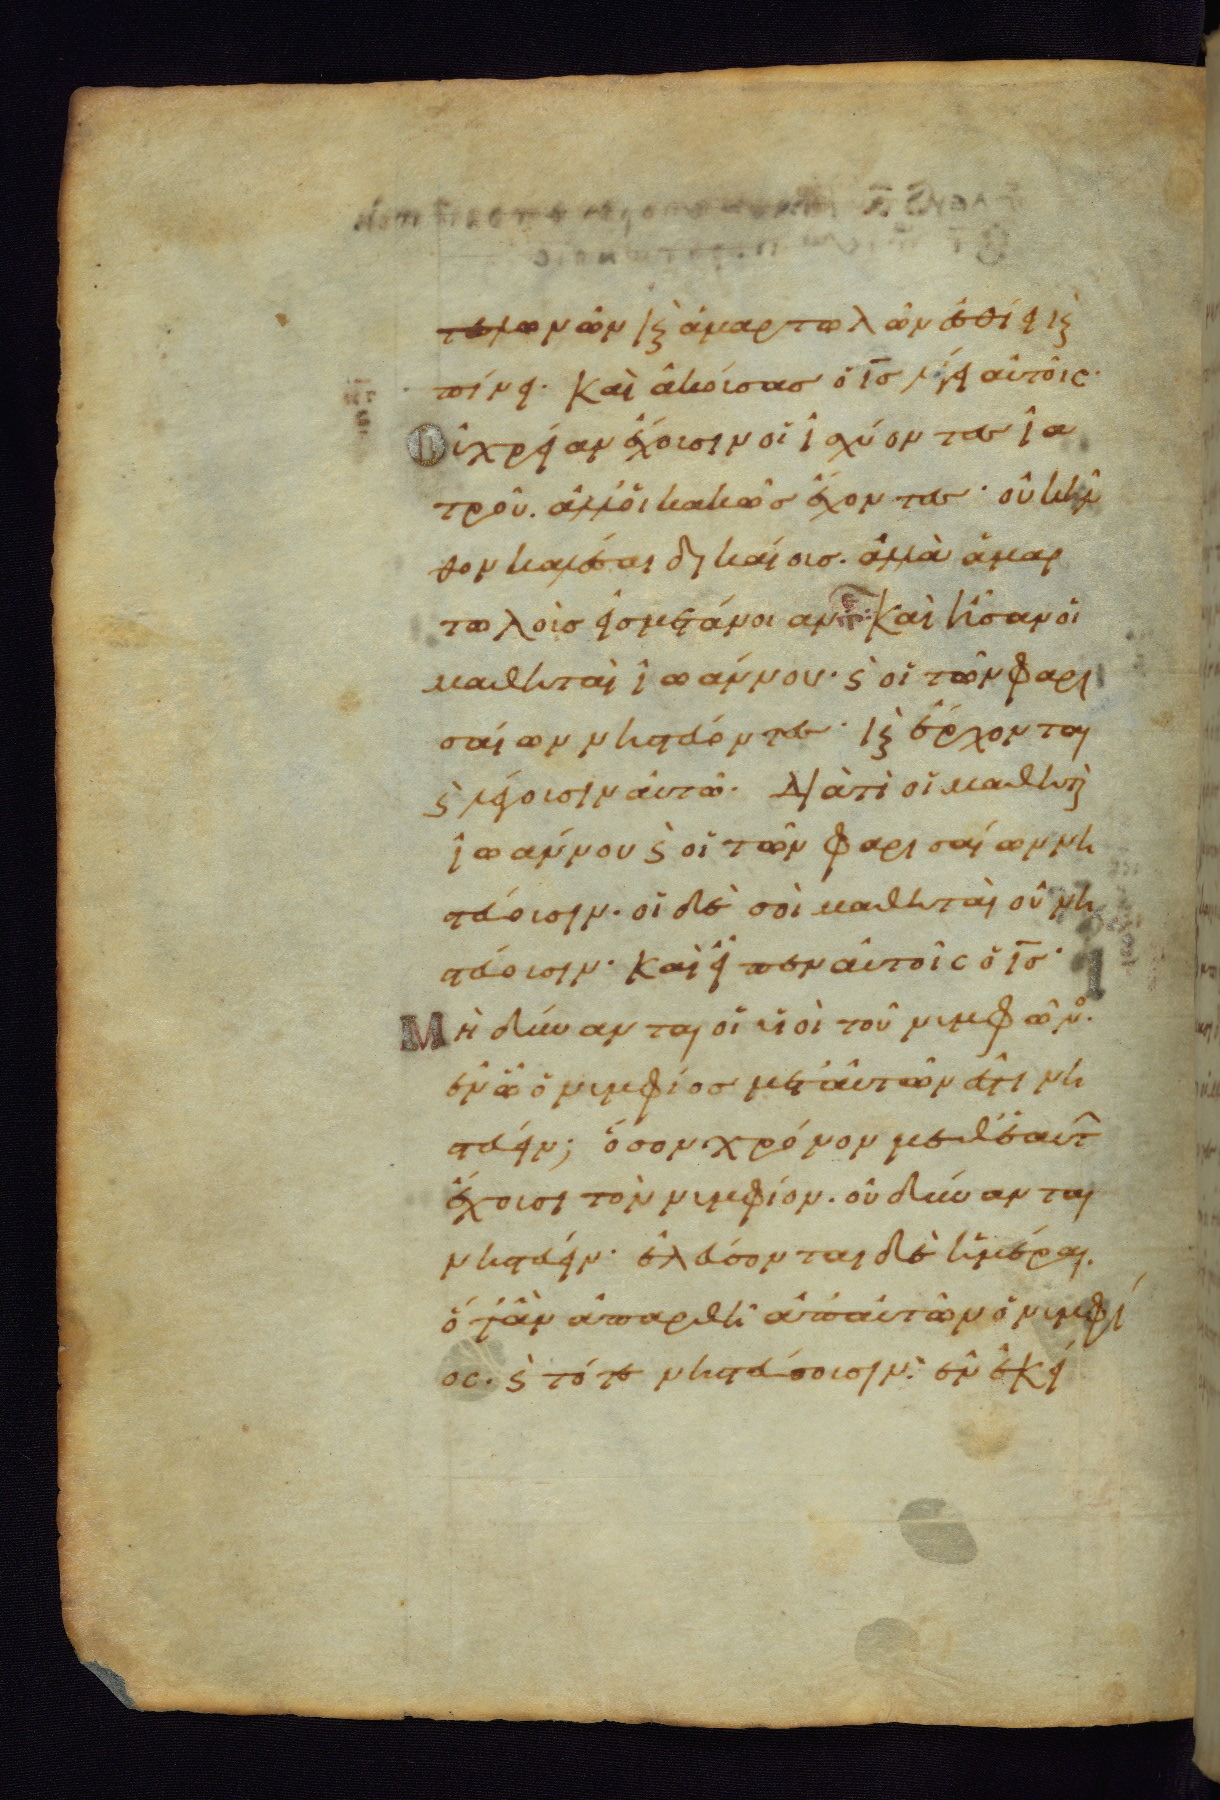 τελωνῶν κ(αὶ) ἁμαρτωλῶν ἐσθίει κ(αὶ)
πίνει· Καὶ ἀκούσασ ὁ ι̅σ λέγει αὐτοῖς·
Οὐ χρείαν ἔχουσιν οἱ ἰσχύοντεσ ἰα
τροῦ. ἀλλ' οἱ κακῶσ ἔχοντεσ· οὐκ ἦλ
θον καλέσαι δικαίουσ. ἀλλὰ ἁμαρ
τωλοὺσ εἰσ μετάνοιαν· Καὶ ἦσαν οἱ
μαθηταὶ ἰωάννου· κ(αὶ) οἱ τῶν φαρι
σαίων νηστεύοντεσ· κ(αὶ) ἔρχονται
κ(αὶ) λέγουσιν αὐτῶ· Διατί οἱ μαθηταὶ
ἰωάννου κ(αὶ) οἱ τῶν φαρισαίων νη
στεύουσιν· οἱ δὲ σοὶ μαθηταὶ οὐ νη
στεύουσιν· Καὶ εἶπεν αὐτοῖς ὁ ι̅σ·
Μὴ δύνανται οἱ υἱοὶ τοῦ νυμφῶν(ος).
ἐν ὧ ὁ νυμφίοσ μετ' αὐτῶν ἐστι νη
στεύειν; ὅσον χρόνον μεθ' ἑαυτ(ῶν)
ἔχουσι τὸν νυμφίον. οὐ δύνανται
νηστεύειν· ἐλεύσονται δὲ ἡμέραι.
ὅταν ἀπαρθῆ ἀπ' αὐτῶν ὁ νυμφί
ος. κ(αὶ) τότε νηστεύσουσιν· ἐν ἐκεί